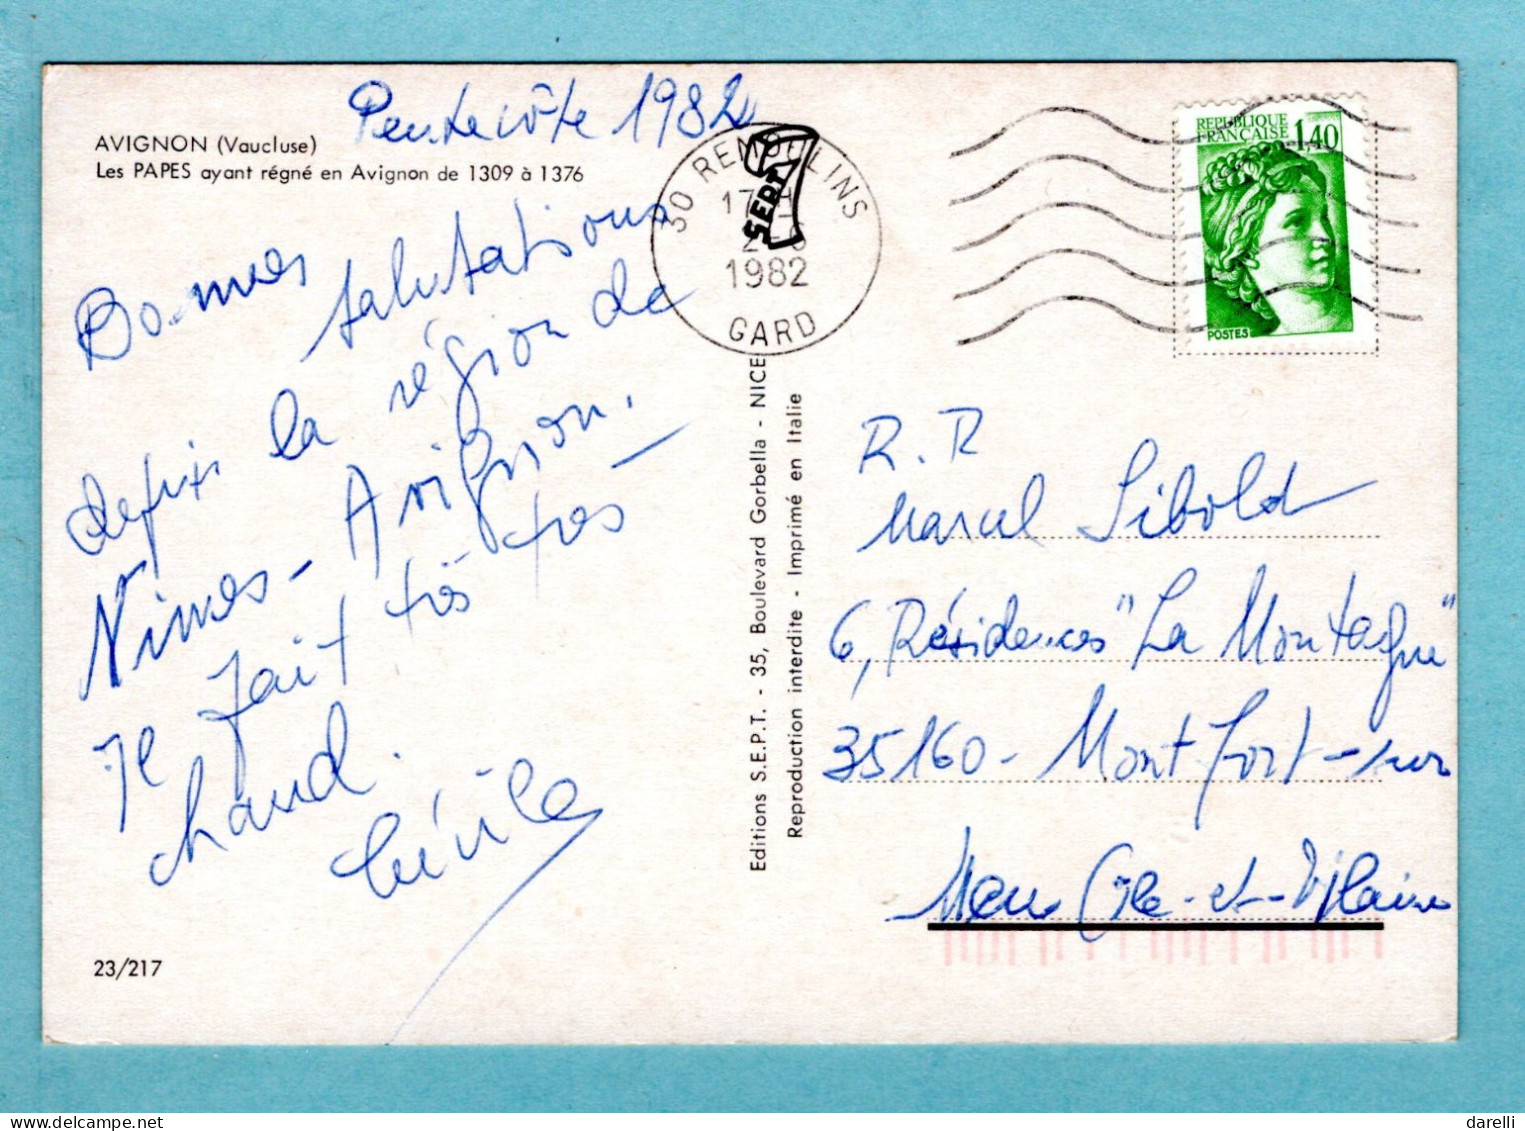 Pentecôte 1982
AVIGNON (Vaucluse)
Les PAPES ayant régné en Avignon de 1309 à 1376
Bonnes
salutations
depuis la région de
Nimes - Avignon.
Il fait très très
chaud.
Cécile
23/217
Editions S.E.P.T. - 35, Boulevard Gorbella - NICE
Reproduction interdite - Imprimé en Italie
SEPT
30 REMOULINS
17 H
2-6
1982
GARD
REPUBLIQUE
FRANÇAISE 1,40
POSTES
R. R
Marcel Sibold
6, Résidences "La Montagne"
35160 - Montfort-sur
Meu Ille-et-Vilaine
darelli